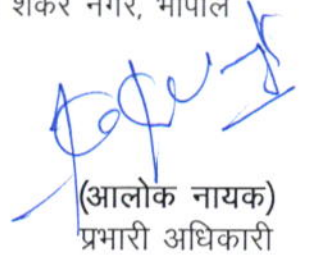 शंकर नगर, भोपाल
(आलोक नायक)
प्रभारी अधिकारी